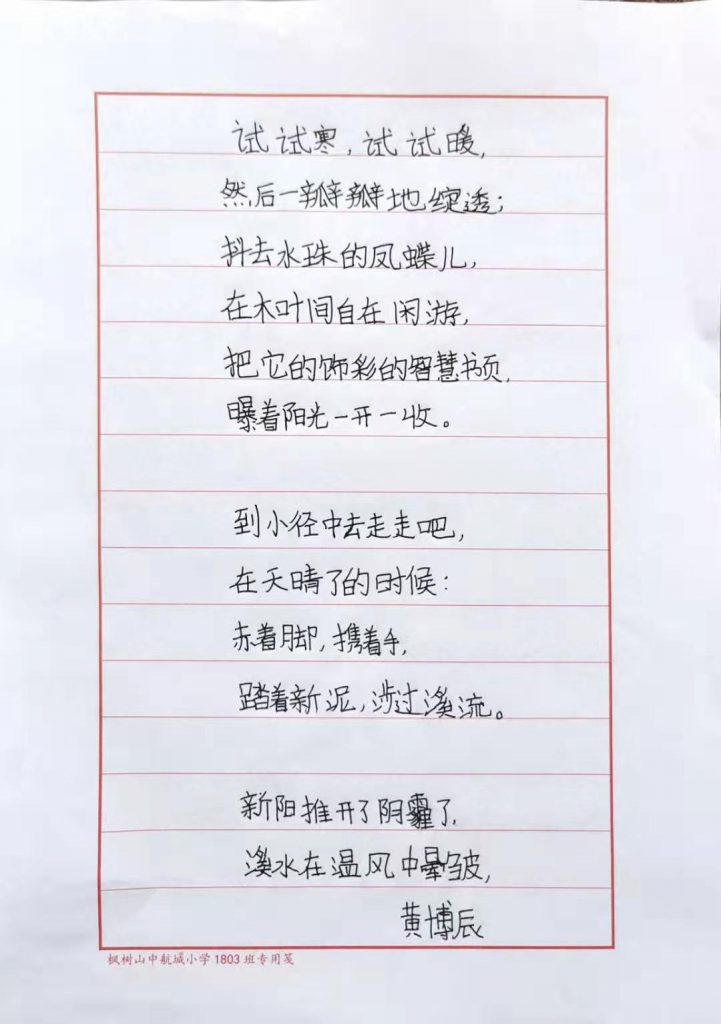 试试寒，试试暖，
然后一瓣瓣地绽透；
抖去水珠的凤蝶儿，
在木叶间自在闲游，
把它的饰彩的智慧书页，
曝着阳光一开一收。
到小径中去走走吧，
在天晴了的时候：
赤着脚，携着手，
踏着新泥，涉过溪流。
新阳推开了阴霾了，
溪水在温风中晕皱，
黄博辰
枫树山中航城小学1803班专用笺